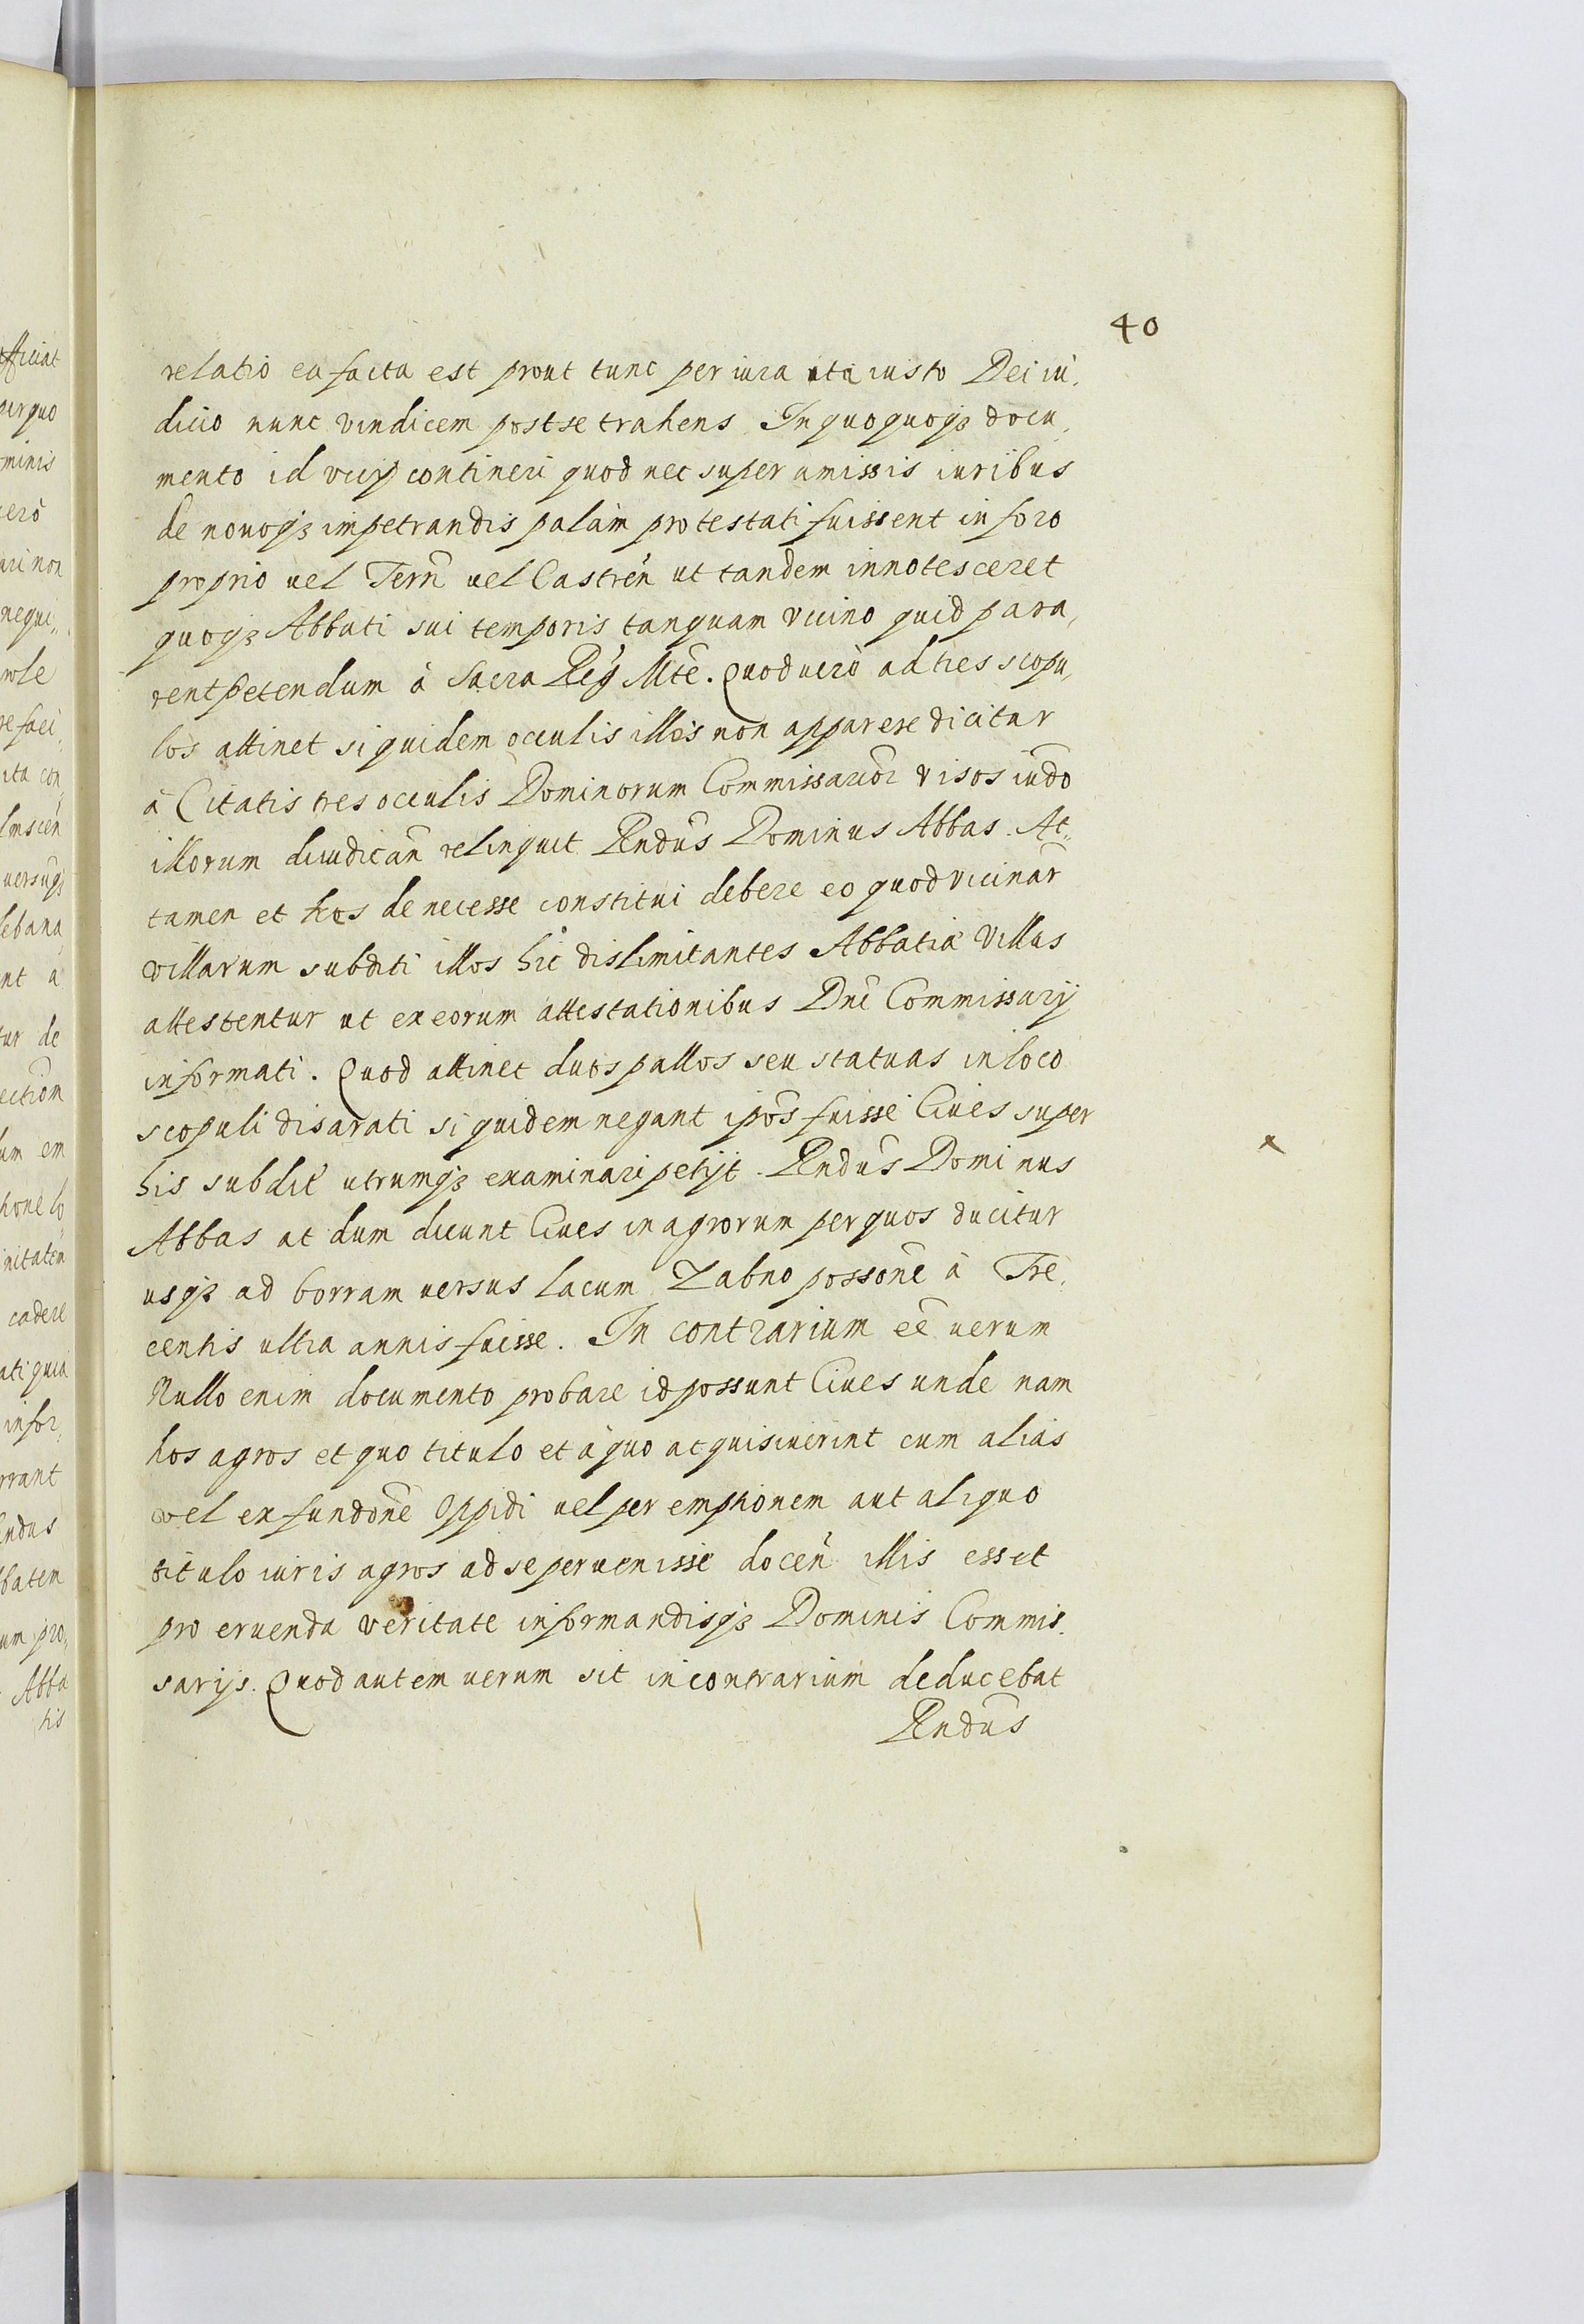 40
relatio ea facta est prout tunc per iura uti iusto Dei iu,
dicio nunc vindicem post se trahens. In quo quoqz docu,
mento id contineri quod nec super amissis iuribus
de nouoqz impetrandis palàm protestati fuissent in foro
proprio uel Terrn̄ uel Castrēn ut tandem innotesceret
quoqz Abbati sui temporis tanquam vicino quid para,
rent petendum à Sacra Reg Mte. Quod uerò ad tres scopu,
los attinet siquidem occulis illos non apparere dicitur
à Citatis tres occulis Dominorum Commissarior visos iudō
illorum diiudicān relinquit Rndūs Dominus Abbas. At,
tamen et hos de necesse constitui debere eo quod vicinar̄
villarum subditi illos hic dislimitantes Abbatiæ Villas
attestentur ut ex eorum attestationibus Dnī Commissarij
informati. Quod attinet duos pallos seu statuas in loco
scopuli disarati siquidem negant ipōs fuisse Ciues super
his subdit utrumqz examinari petijt Rndūs Dominus
Abbas at dum dicunt Ciues in agrorum per quos ducitur
usqz ad borram uersus lacum Zabno possonē à Tre,
centis ultra annis fuisse. In contrarium eē uerum
Nullo enim documento probare id possunt Ciues unde nam
hos agros et quo titulo et à quo acquisiuerint cum alias
vel ex fundonē Oppidi uel per emptionem aut aliquo
titulo iuris agros ad se peruenisse docēn illis esset
pro eruenda veritate informandisqz Dominis Commis,
sarijs. Quod autem uerum sit in contrarium deducebat
Rndūs
x